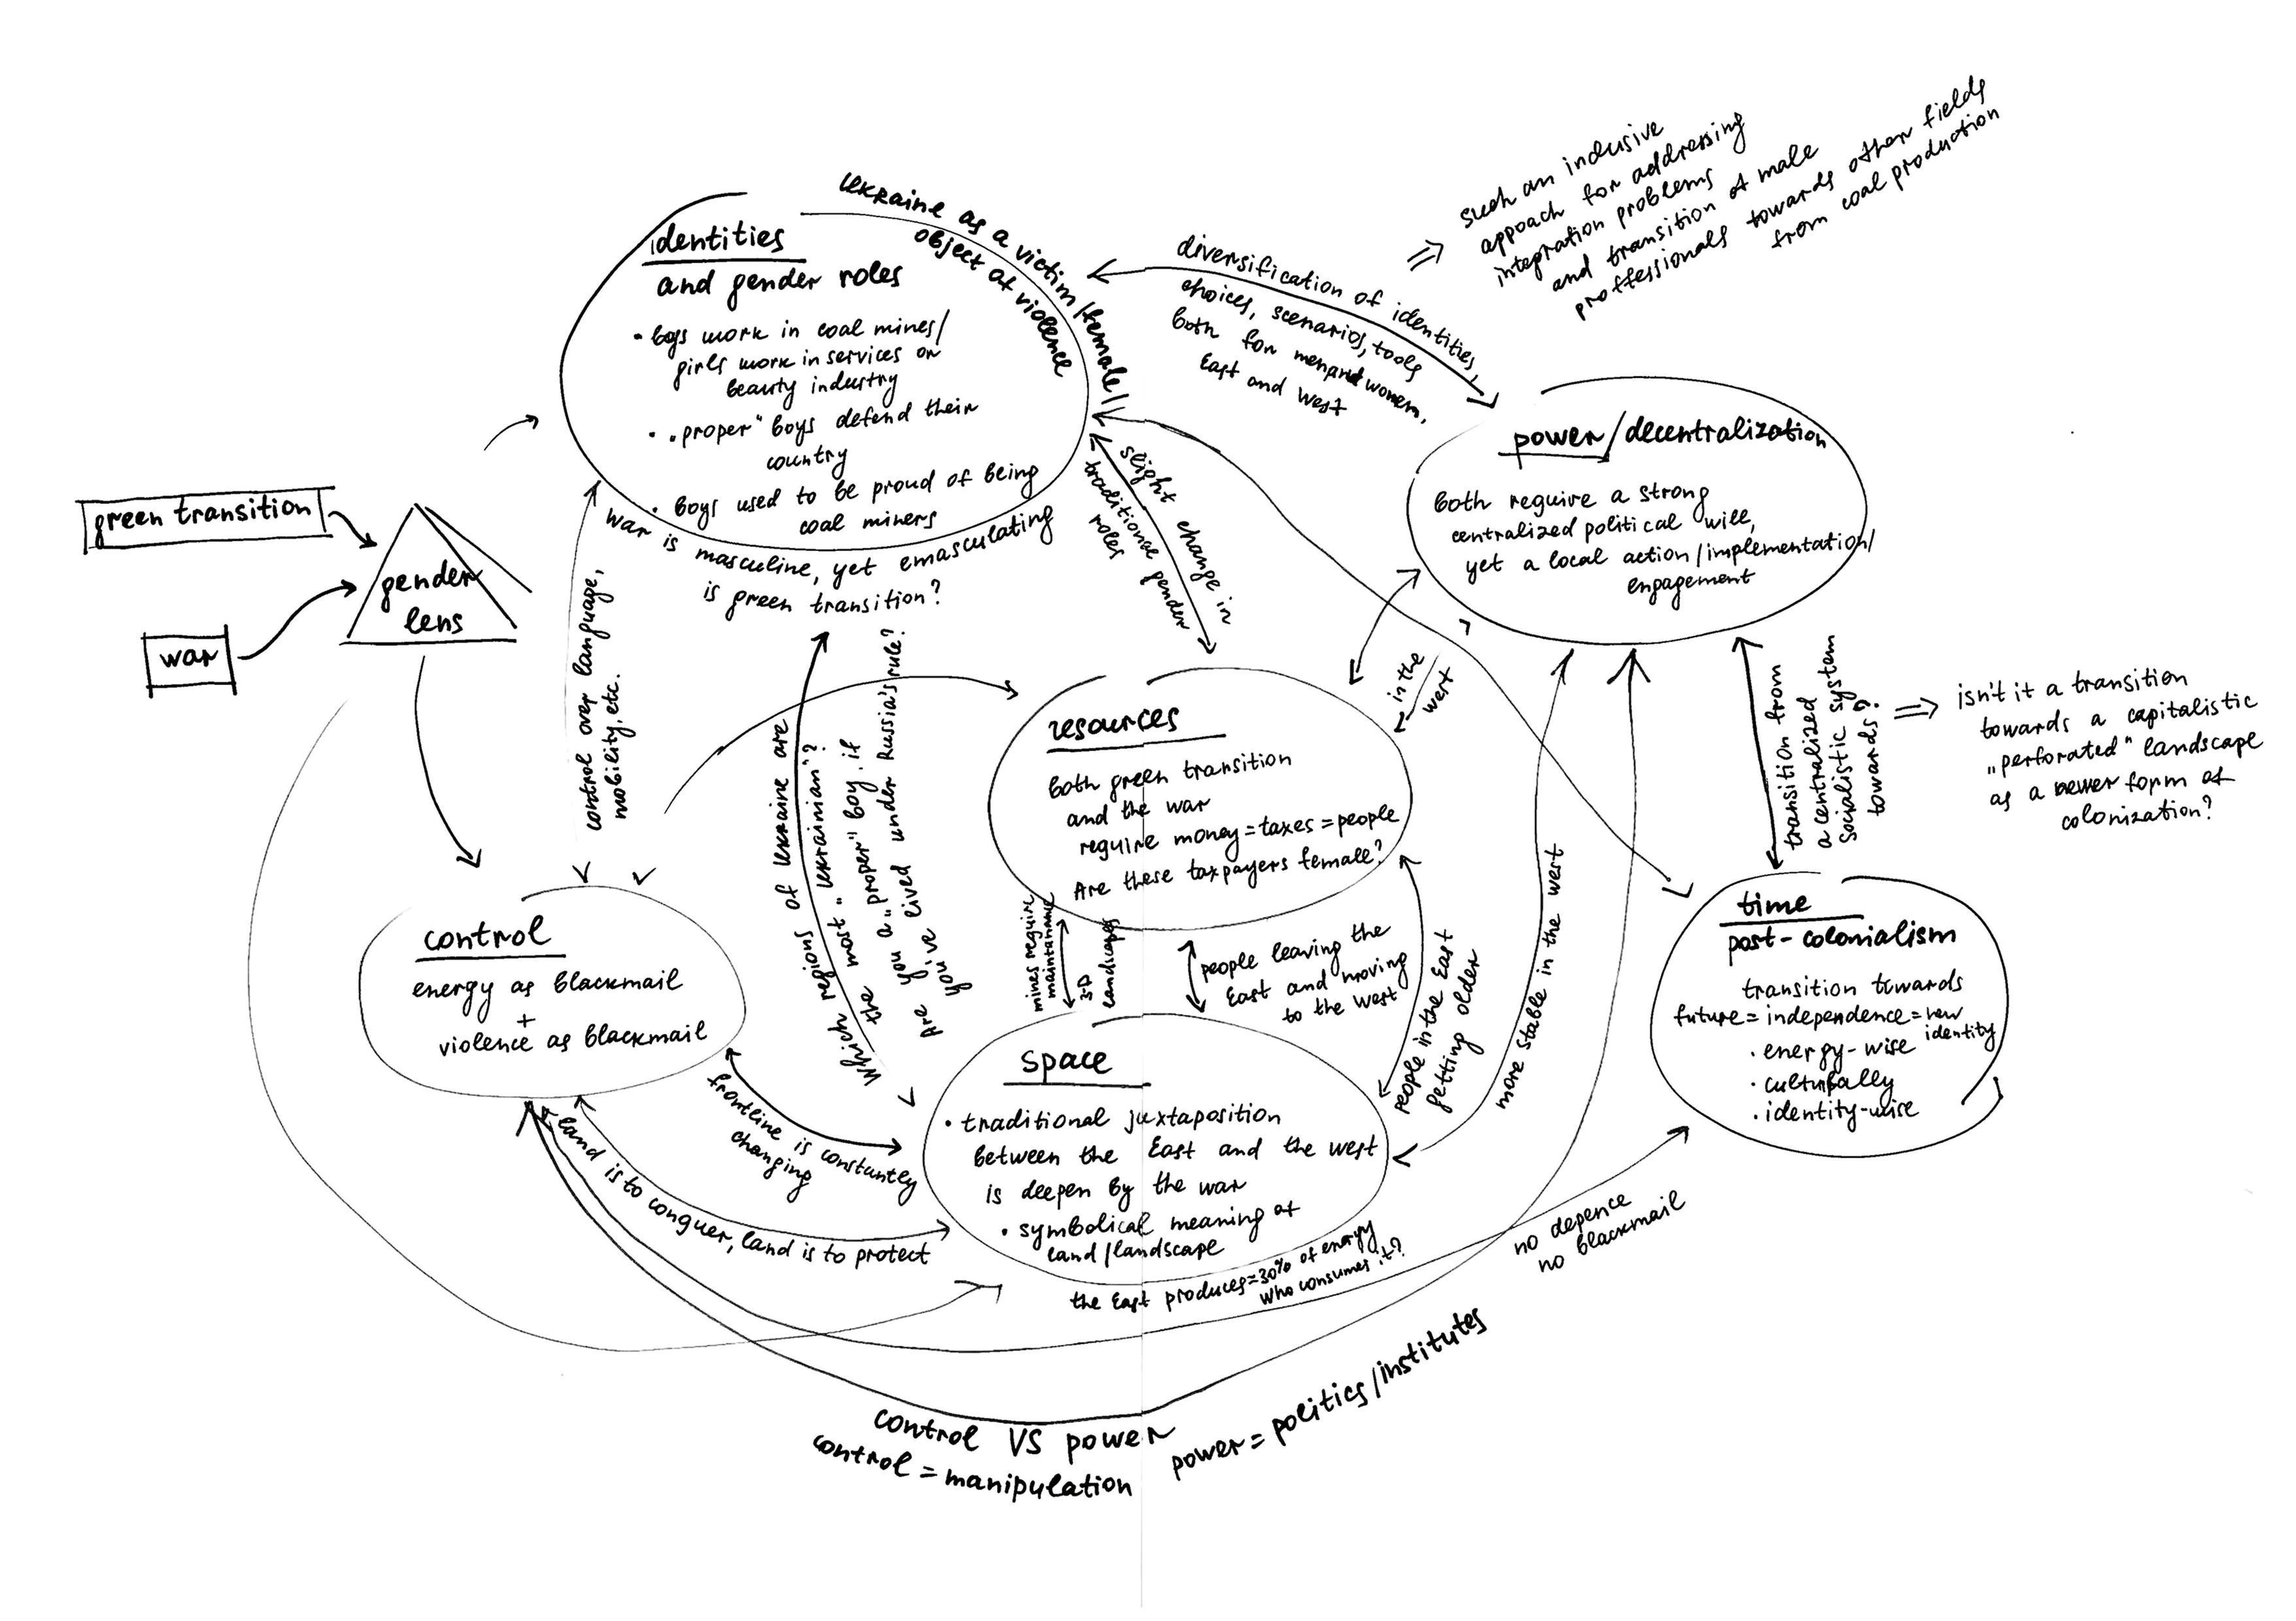 green transition
war
gender
lens
identities
and gender roles
• boys work in coal mines/
girls work in services or
beauty industry
• „proper" boys defend their
country
• boys used to be proud of being
coal miners
Ukraine as a victim/female/
object of violence
war is masculine, yet emasculating
is green transition?
diversification of identities,
choices, scenarios, tools
both for men and women,
East and West
⇒ such an inclusive
appoach for addressing
integration problems
and transition of male
proffessionals towards other fields
from coal production
power/decentralization
both require a strong
centralized political will,
yet a local action/implementation/
engagement
slight change in
traditional gender
roles
in the
west
control over language,
mobility, etc.
which regions of Ukraine are
the most „Ukrainian"?
Are you a „proper" boy, if
you've lived under Russia's rule?
resources
both green transition
and the war
require money = taxes = people
Are these taxpayers female?
transition from
a centralized
socialistic system
towards?
⇒ isn't it a transition
towards a capitalistic
„perforated" landscape
as a newer form of
colonization?
control
energy as blackmail
+
violence as blackmail
mines require
maintanance
3-D
landscapes
people leaving the
East and moving
to the West
people in the East
getting older
more stable in the west
time
post-colonialism
transition towards
future = independence = new
identity
• energy-wise
• culturally
• identity-wise
space
• traditional juxtaposition
between the East and the west
is deepen by the war
• symbolical meaning of
land/landscape
frontline is constantly
changing
land is to conquer, land is to protect
the East produces = 30% of energy
who consumes it?
no depence
no blackmail
control VS power
control = manipulation
power = politics/institutes